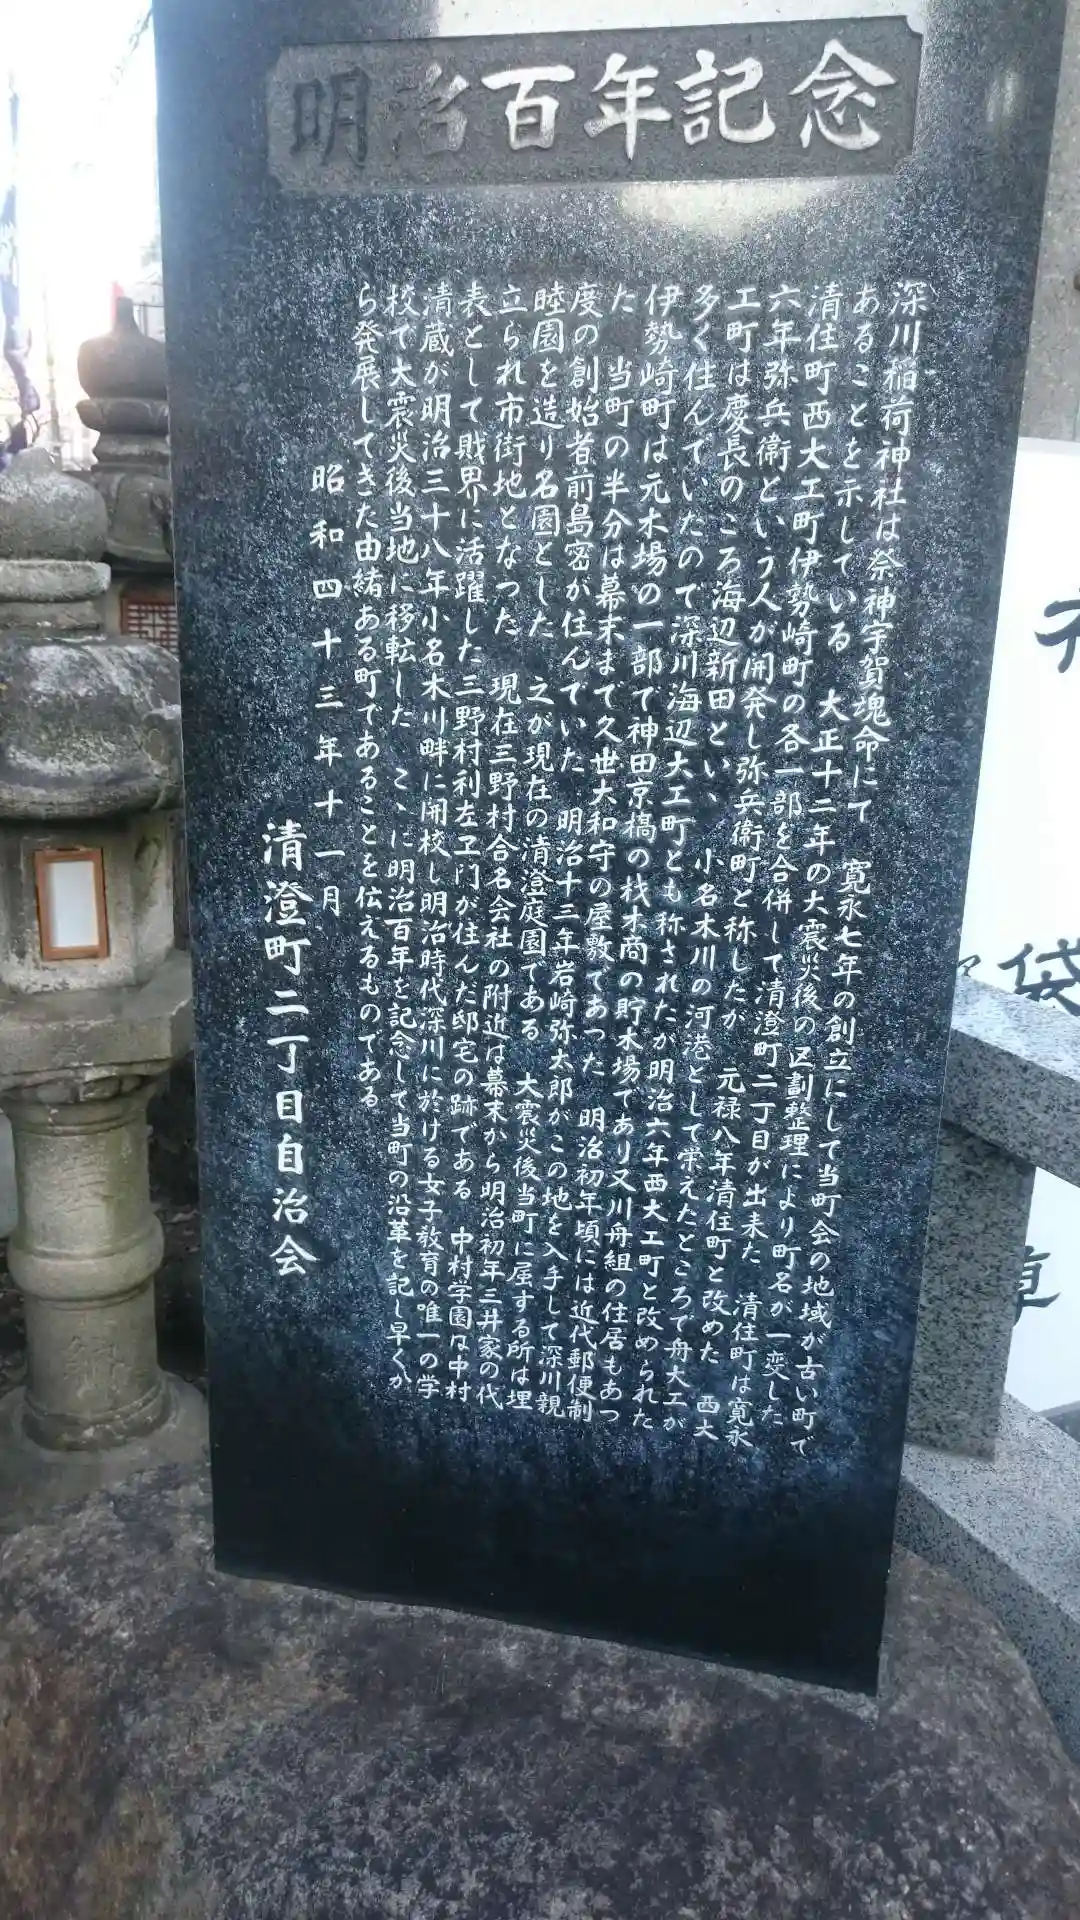 明治百年記念
深川稲荷神社は祭神宇賀魂命にて　寛永七年の創立にして当町会の地域が古い町で
あることを示している　大正十二年の大震災後の区劃整理により町名が一変した
清住町西大工町伊勢崎町の各一部を合併して清澄町二丁目が出来た　清住町は寛永
六年弥兵衛という人が開発し弥兵衛町と称したが　元禄八年清住町と改めた　西大
工町は慶長のころ海辺新田といゝ　小名木川の河港として栄えたところで舟大工が
多く住んでいたので深川海辺大工町とも称されたが明治六年西大工町と改められた
伊勢崎町は元木場の一部で神田京橋の材木商の貯木場であり又川舟組の住居もあつ
た　当町の半分は幕末まで久世大和守の屋敷であつた　明治初年頃には近代郵便制
度の創始者前島密が住んでいた　明治十三年岩崎弥太郎がこの地を入手して深川親
睦園を造り名園とした　之が現在の清澄庭園である　大震災後当町に属する所は埋
立られ市街地となつた　現在三野村合名会社の附近は幕末から明治初年三井家の代
表として財界に活躍した三野村利左ヱ門が住んだ邸宅の跡である　中村学園は中村
清蔵が明治三十八年小名木川畔に開校し明治時代深川に於ける女子教育の唯一の学
校で大震災後当地に移転した　こゝに明治百年を記念して当町の沿革を記し早くか
ら発展してきた由緒ある町であることを伝えるものである
昭和四十三年十一月
清澄町二丁目自治会
袋